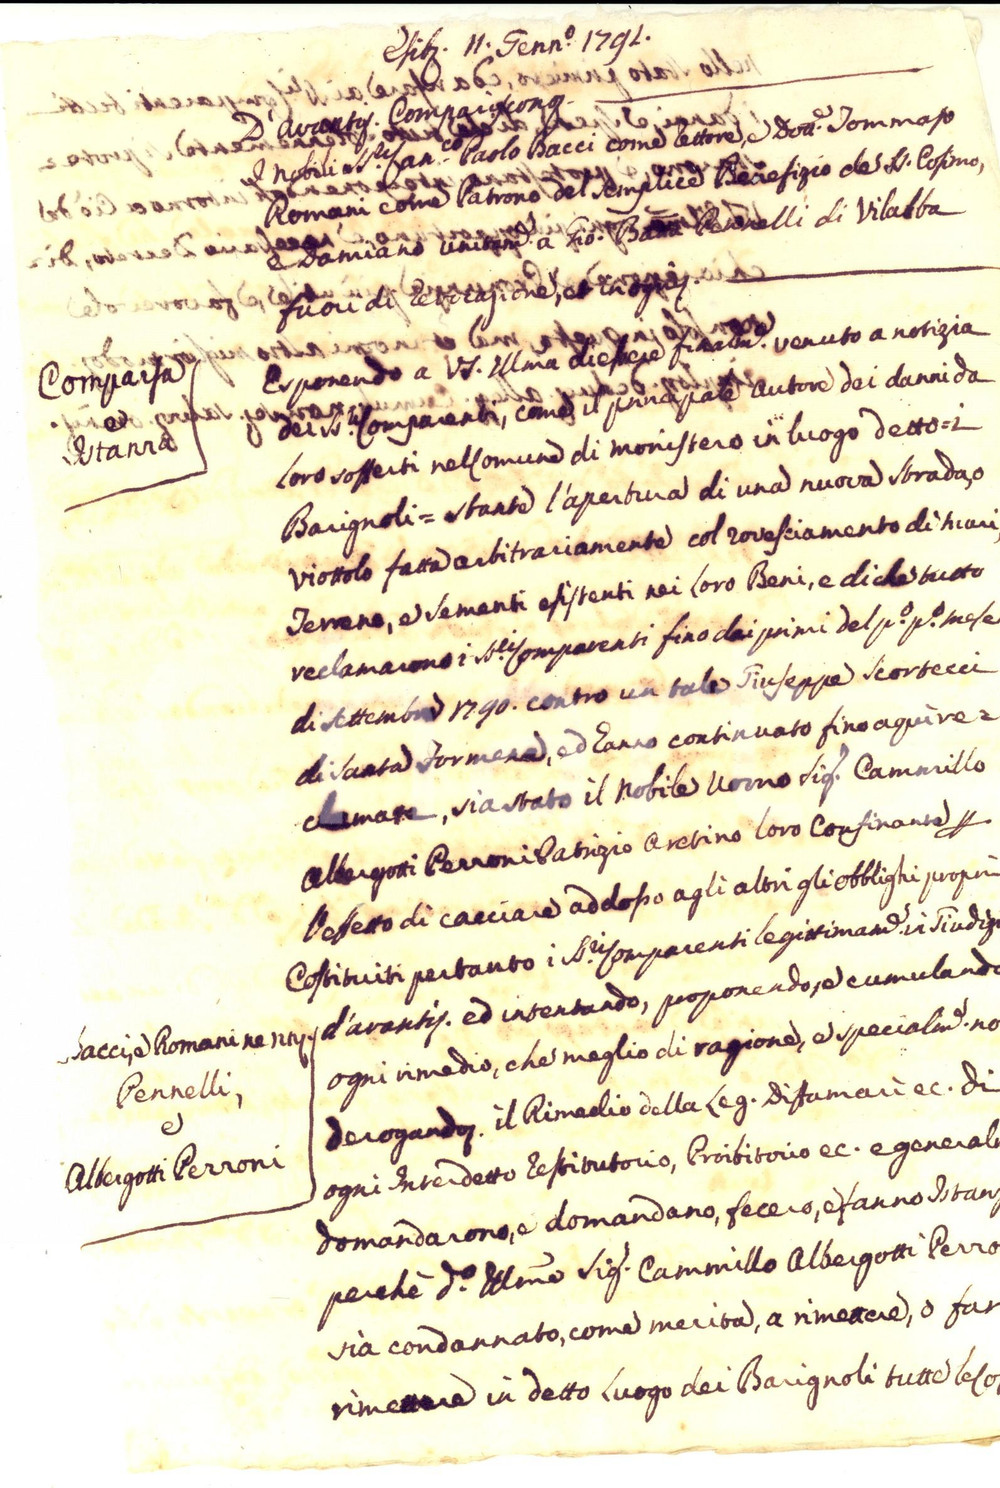 Esib. 11. Genn.º 1791.
D'avanti. Compariscono
I Nobili SS.ri Fran.co Paolo Bacci come lettore, e Dott.e Tommaso
Romani come Patrono del semplice Benefizio de SS. Cosimo,
e Damiano unitam.e a Gio. Batta Pennelli di Vilalba
fuori di revocazione, et in ogni
Comparsa
e
Istanza
Esponendo a VS. Illma d'essere finalm.e venuto a notizia
dei SS.ri Comparenti, come il principale autore dei danni da
loro sofferti nel Comune di Monistero in luogo detto = i
Barignoli = stante l'apertura di una nuova strada, o
viottolo fatta arbitrariamente col rovesciamento di
Terreno, e sementi esistenti nei loro Beni, e di che tutto
reclamarono i SS.ri Comparenti fino dai primi del p.º p.º mese
di Settembre 1790. contro un tale Giuseppe Scortecci
di Santa Formena, ed hanno continuato fino a qui re=
clamare, sia stato il Nobile Uomo Sig.r Cammillo
Albergotti Perroni Patrizio Aretino loro Confinante
l'effetto di cacciare addosso agli altri gli obblighi proprii
Costituiti pertanto i SS.ri Comparenti legittimam.e in Giudizi
d'avanti. ed intentando, proponendo, e cumulando
ogni rimedio, che meglio di ragione, e specialm.e no
derogando. il Rimedio della Leg. Diffamari ec. di
ogni Interdetto Restitutorio, Proibitorio ec. e general
Bacci, e Romani ne nn.
Pennelli,
e
Albergotti Perroni
domandarono, e domandano, fecero, e fanno Istanz
perchè d.º Illmo Sig.r Cammillo Albergotti Perro
sia condannato, come merita, a rimettere, o far
rimettere in detto Luogo dei Barignoli tutte le co